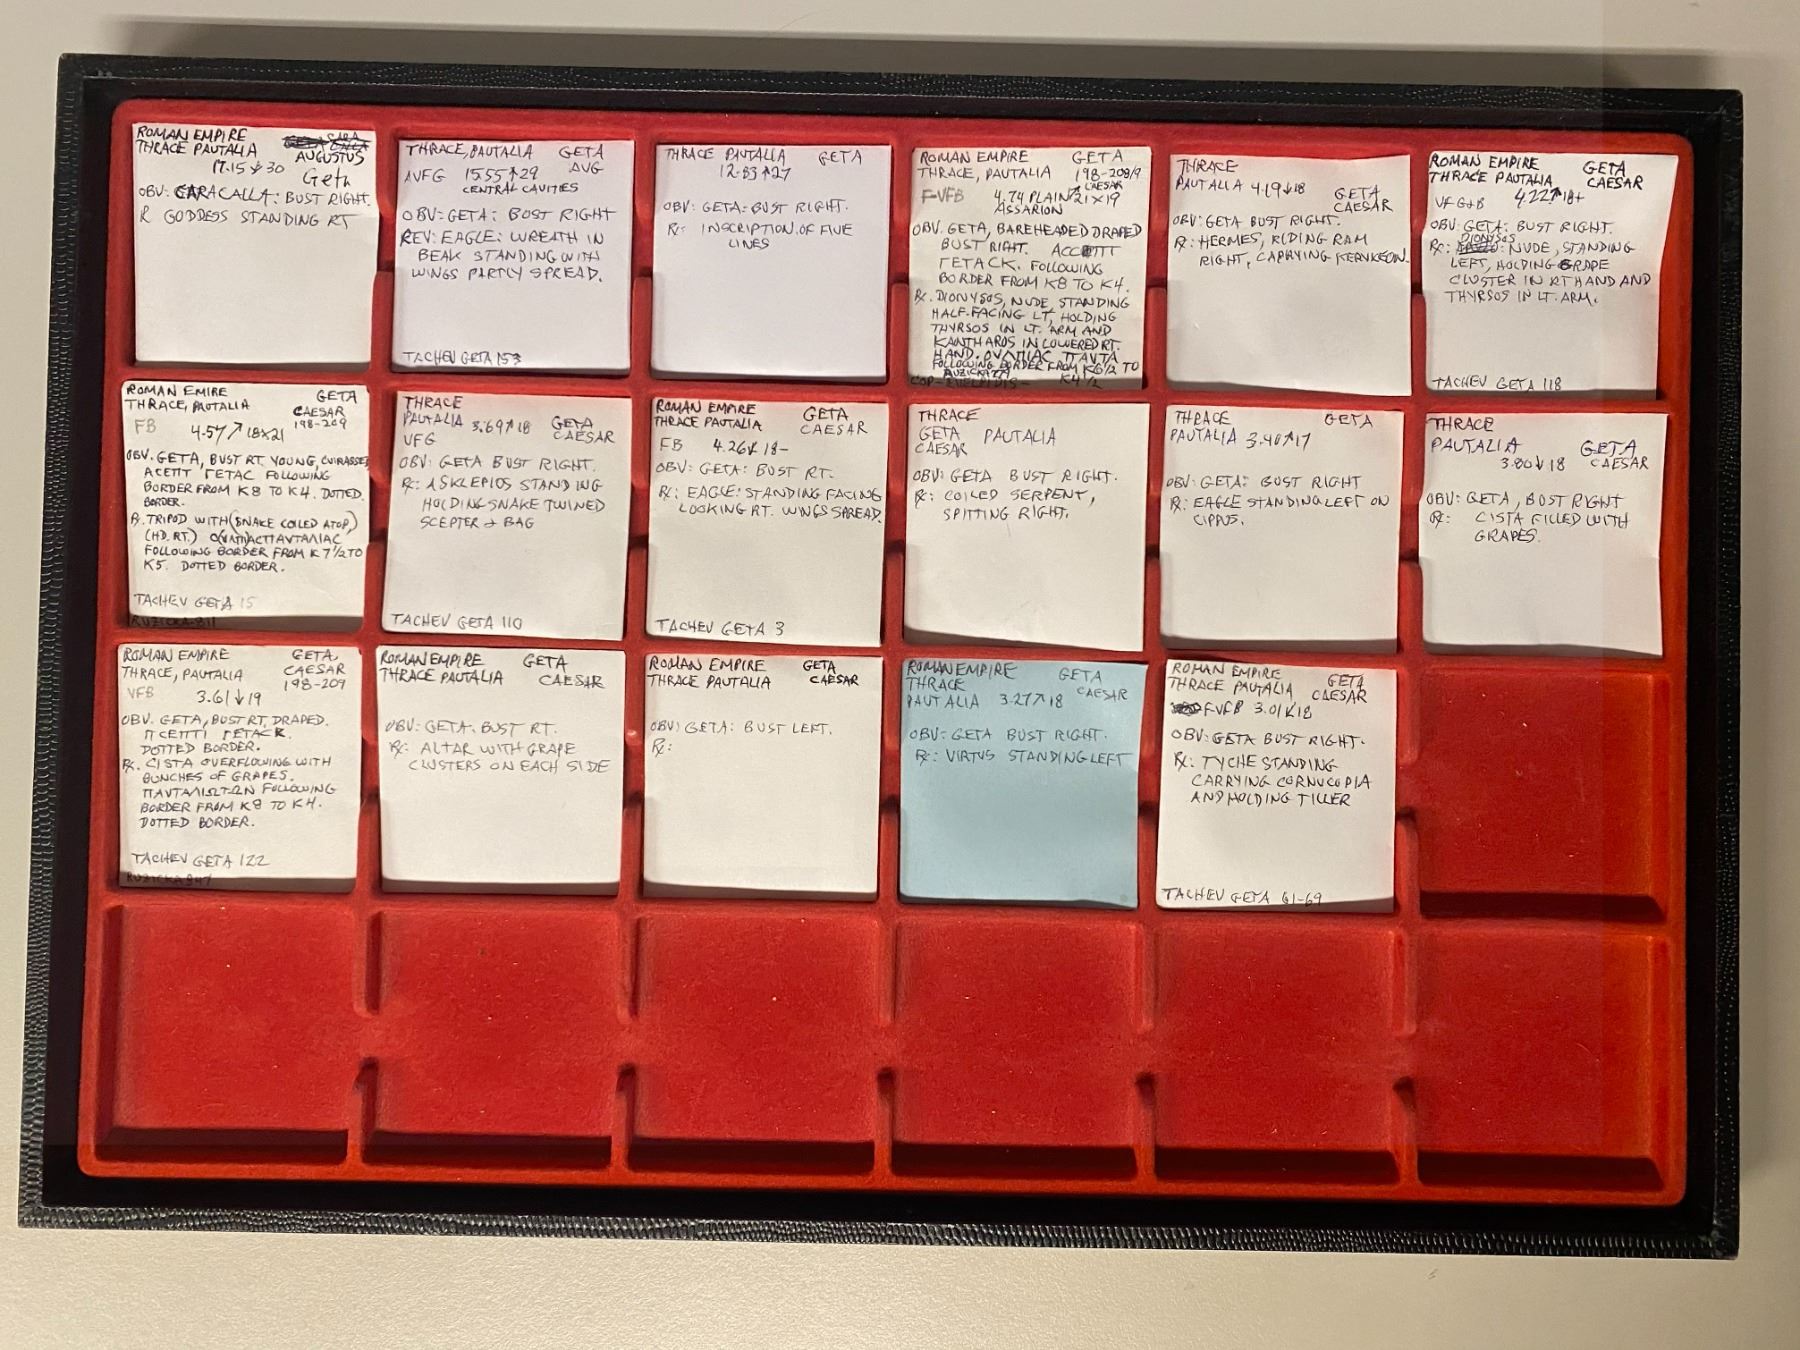 ROMAN EMPIRE
THRACE PAUTALIA AUGUSTUS
17.15 ↓ 30 Geta
OBV: CARACALLA: BUST RIGHT.
R GODDESS STANDING RT
THRACE, PAUTALIA GETA
AVFG 15.55 ↑ 29 AUG
CENTRAL CAVITIES
OBV: GETA: BUST RIGHT
REV: EAGLE: WREATH IN
BEAK STANDING WITH
WINGS PARTLY SPREAD.
TACHEV GETA 153
THRACE PAUTALIA GETA
12.83 ↑ 27
OBV: GETA: BUST RIGHT.
R: INSCRIPTION OF FIVE
LINES
ROMAN EMPIRE GETA
THRACE, PAUTALIA 198-208/9
CAESAR
F-VFB 4.74 PLAIN 21X19
ASSARION
OBV. GETA, BAREHEADED DRAPED
BUST RIGHT.
ΓETACK. FOLLOWING
BORDER FROM K8 TO K4.
R. DIONYSOS, NUDE, STANDING
HALF-FACING LT, HOLDING
THYRSOS IN LT. ARM AND
KANTHAROS IN LOWERED RT.
HAND. OVΛΠIAC ΠAVTA
FOLLOWING BORDER FROM K6 1/2 TO
K4 1/2
THRACE
PAUTALIA 4.19 ↓ 18 GETA
CAESAR
OBV: GETA BUST RIGHT.
R: HERMES, RIDING RAM
RIGHT, CARRYING KERYKEON.
ROMAN EMPIRE GETA
THRACE PAUTALIA CAESAR
VF G+B 4.22 ↗ 18+
OBV: GETA: BUST RIGHT.
DIONYSOS
R: NUDE, STANDING
LEFT, HOLDING GRAPE
CLUSTER IN RT HAND AND
THYRSOS IN LT. ARM.
TACHEV GETA 118
ROMAN EMIRE GETA
THRACE, PAUTALIA CAESAR
198-209
FB 4.57 ↗ 18X21
OBV. GETA, BUST RT. YOUNG, CUIRASSED
ΛCEΠT ΓETAC FOLLOWING
BORDER FROM K8 TO K4. DOTTED
BORDER.
R. TRIPOD WITH (SNAKE COILED ATOP,)
(HD. RT.)
FOLLOWING BORDER FROM K7 1/2 TO
K5. DOTTED BORDER.
TACHEV GETA 15
RUZICKA 811
THRACE
PAUTALIA 3.69 ↑ 18 GETA
VFG CAESAR
OBV: GETA BUST RIGHT.
R: ASKLEPIOS STANDING
HOLDING SNAKE TWINED
SCEPTER + BAG
TACHEV GETA 110
ROMAN EMPIRE GETA
THRACE PAUTALIA CAESAR
FB 4.26 ↙ 18-
OBV: GETA: BUST RT.
R: EAGLE: STANDING FACING
LOOKING RT. WINGS SPREAD.
TACHEV GETA 3
THRACE
GETA PAUTALIA
CAESAR
OBV: GETA BUST RIGHT.
R: COILED SERPENT,
SPITTING RIGHT.
THRACE GETA
PAUTALIA 3.40 ↗ 17
OBV: GETA: BUST RIGHT
R: EAGLE STANDING LEFT ON
CIPPUS.
THRACE
PAUTALIA GETA
3.80 ↓ 18 CAESAR
OBV: GETA, BUST RIGHT
R: CISTA FILLED WITH
GRAPES.
ROMAN EMPIRE GETA
THRACE, PAUTALIA CAESAR
VFB 3.61 ↓ 19 198-209
OBV. GETA, BUST RT. DRAPED.
ΓETACK.
DOTTED BORDER.
R. CISTA OVERFLOWING WITH
BUNCHES OF GRAPES.
FOLLOWING
BORDER FROM K8 TO K4.
DOTTED BORDER.
TACHEV GETA 122
RUZICKA 947
ROMAN EMPIRE GETA
THRACE PAUTALIA CAESAR
OBV: GETA: BUST RT.
R: ALTAR WITH GRAPE
CLUSTERS ON EACH SIDE
ROMAN EMPIRE GETA
THRACE PAUTALIA CAESAR
OBV: GETA: BUST LEFT.
R:
ROMAN EMPIRE GETA
THRACE CAESAR
PAUTALIA 3.27 ↗ 18
OBV: GETA BUST RIGHT.
R: VIRTUS STANDING LEFT
ROMAN EMPIRE GETA
THRACE PAUTALIA CAESAR
FVFB 3.01 ↙ 18
OBV: GETA BUST RIGHT.
R: TYCHE STANDING
CARRYING CORNUCOPIA
AND HOLDING TILLER
TACHEV GETA 61-69